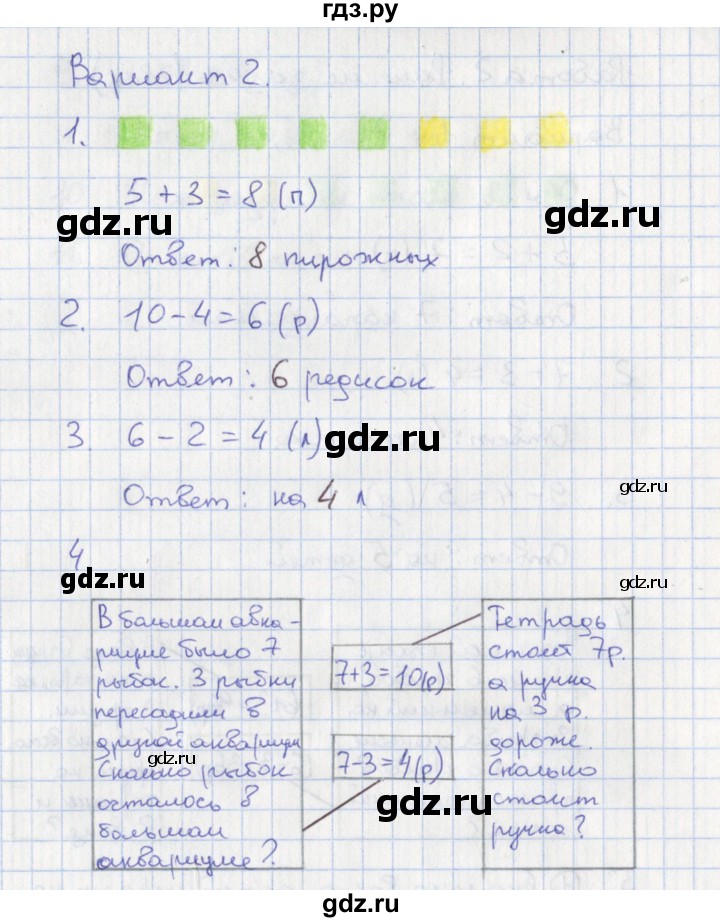 гдз.ру
Вариант 2.
1.
5 + 3 = 8 (п)
gdz.ru
gdz.ru
Ответ: 8 пирожных
2. 10 - 4 = 6 (р)
gdz.ru
Ответ: 6 редисок
3 6 - 2 = 4 (л)
gdz.ru
Ответ: на 4 л
gdz.ru
4
gdz.ru
gdz.ru
В большом аква-
риуме было 7
рыбок. 3 рыбки
пересадили в
другой аквариум
Сколько рыбок
осталось в
большом
аквариуме?
7+3=10(р)
7-3=4(р)
Тетрадь
стоит 7р.
а ручка
на 3 р.
дороже.
Сколько
стоит
ручка?
gdz.ru
gdz.ru
gdz.ru
gdz.ru
gdz.ru